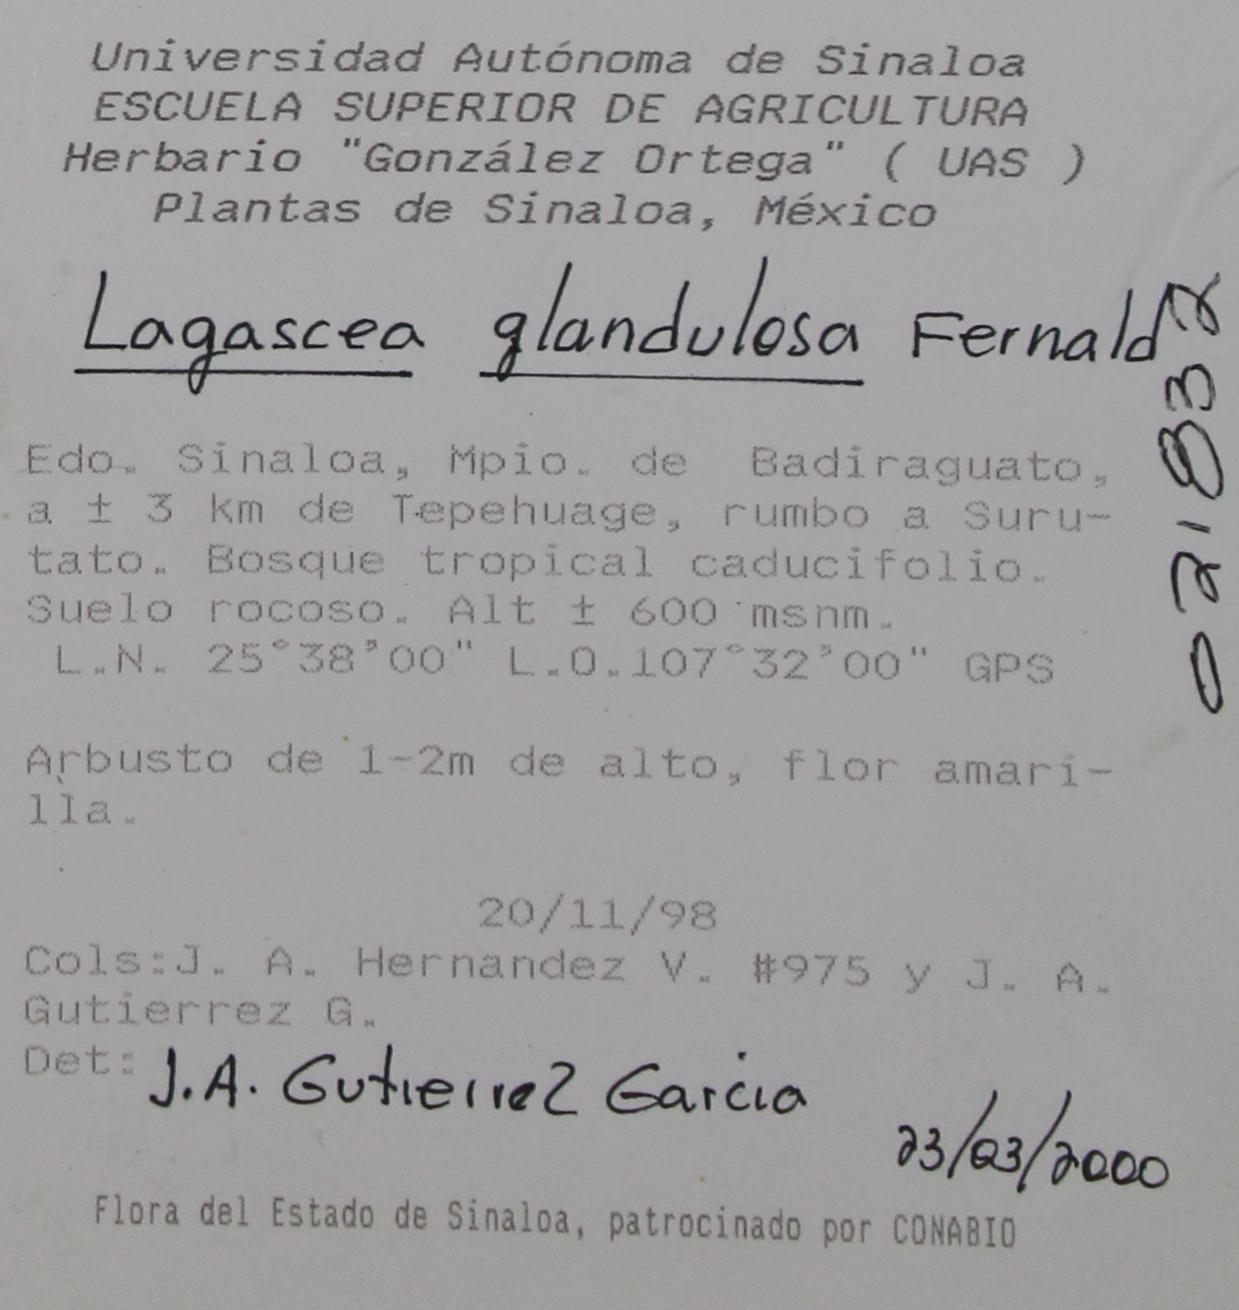 Universidad Autónoma de Sinaloa
ESCUELA SUPERIOR DE AGRICULTURA
Herbario "González Ortega" ( UAS )
Plantas de Sinaloa, México
Lagascea glandulosa Fernald
021832
Edo. Sinaloa, Mpio. de Badiraguato,
a ± 3 km de Tepehuage, rumbo a Suru-
tato. Bosque tropical caducifolio.
Suelo rocoso. Alt ± 600 msnm.
L.N. 25°38'00" L.O.107°32'00" GPS
Arbusto de 1-2m de alto, flor amari-
lla.
20/11/98
Cols:J. A. Hernandez V. #975 y J. A.
Gutierrez G.
Det: J.A. Gutierrez Garcia
23/03/2000
Flora del Estado de Sinaloa, patrocinado por CONABIO